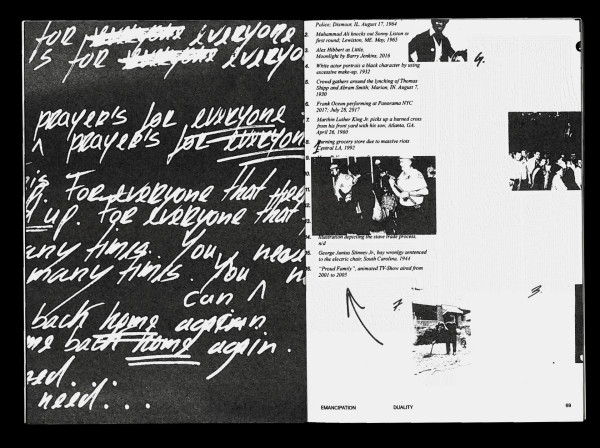 for everyone everyone
is for everyone everyo
prayer's for everyone
^ prayer's for everyon
is. For everyone that
d up. For everyone that
any times. You need
many times. You n
can ^
back home again
me back home again.
need. .
need. . .
Police; Dixmoor, IL. August 17, 1964
2. Muhammad Ali knocks out Sonny Liston in
first round; Lewiston, ME. May, 1965
3. Alex Hibbert as Little,
Moonlight by Barry Jenkins, 2016
4. White actor portrais a black character by using
excessive make-up, 1932
5. Crowd gathers around the lynching of Thomas
Shipp and Abram Smith; Marion, IN. August 7,
1930
6. Frank Ocean performing at Panorama NYC
2017; July 28, 2017
7. Marthin Luther King Jr. picks up a burned cross
from his front yard with his son; Atlanta, GA.
April 26, 1960
8. Burning grocery store due to massive riots
Central LA, 1992
9.
10.
11.
12.
13.
Illustration depicting the slave trade process,
n/d
George Junius Stinney Jr., boy wrongly sentenced
to the electric chair; South Carolina, 1944
"Proud Family", animated TV-Show aired from
2001 to 2005
9.
1.
7.
3.
EMANCIPATION
DUALITY
69